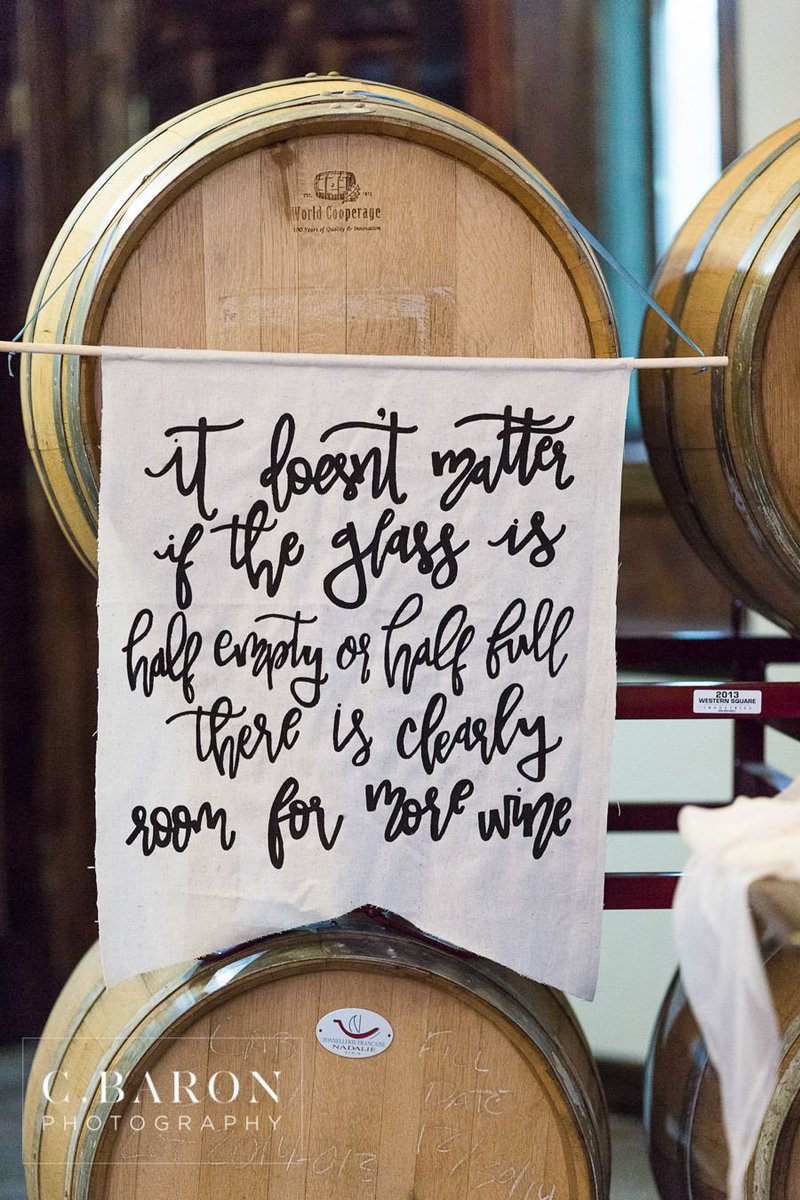 EST. 1912
World Cooperage
100 Years of Quality & Innovation
it doesn't matter
if the glass is
half empty or half full
there is clearly
room for more wine
2013
WESTERN SQUARE
INDUSTRIES
TONNELLERIE FRANÇAISE
NADALIÉ
U.S.A.
DATE
12/30/14
2014-013
C. BARON
PHOTOGRAPHY